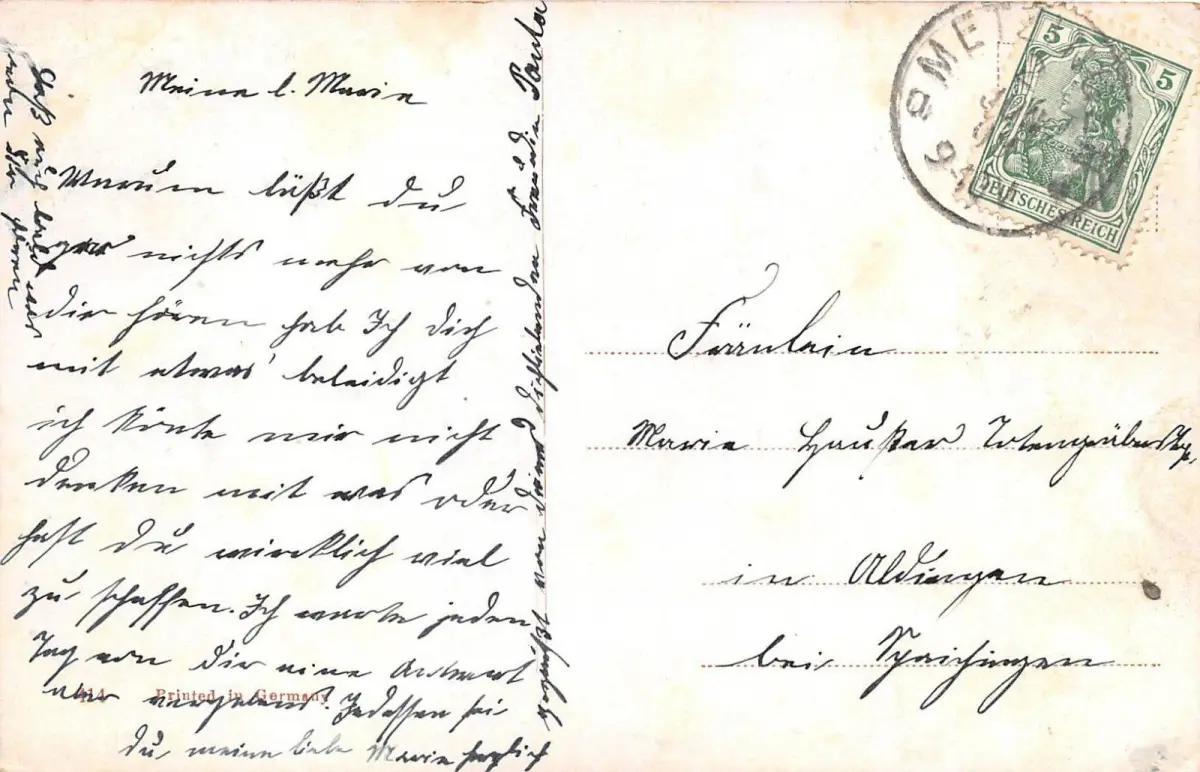 Meine l. Marie
Warum läßt du
gar nichts mehr von
dir hören hab Ich dich
mit etwas beleidigt
ich könte mir nicht
denken mit was oder
hast du wircklich viel
zu schaffen. Ich warte jeden
Tag von dir eine Antwort
aber vergebens? Indessen sei
du, meine liebe Marie herzlich
gegrüßt von deiner dichliebenden Freundin Paula
Laß auch bald was
von dir hören
414 Printed in Germany
METZ
5 5
DEUTSCHES REICH
Fräulein
Marie Haußer Totengräbers
in Aldingen
bei Spaichingen